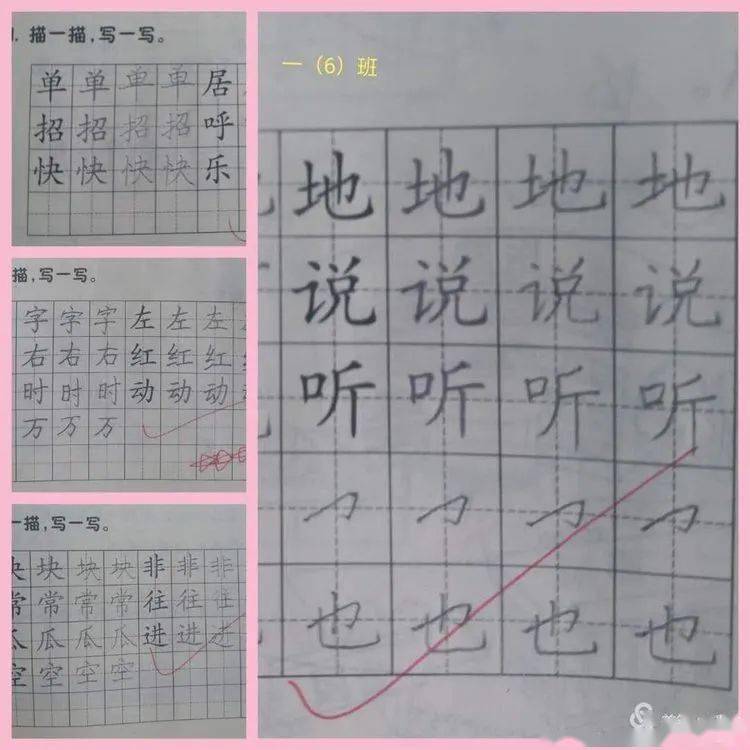 描一描，写一写。
单单单单居
招招招招呼
快快快快乐
描，写一写。
字字字左左左
右右右红红红
时时时动动动
万万万
一描，写一写。
块块块块非非非
常常常常往往往
瓜瓜瓜瓜进进进
空空空空
一（6）班
地地地地
说说说说
听听听听
㇆㇆㇆㇆
也也也也